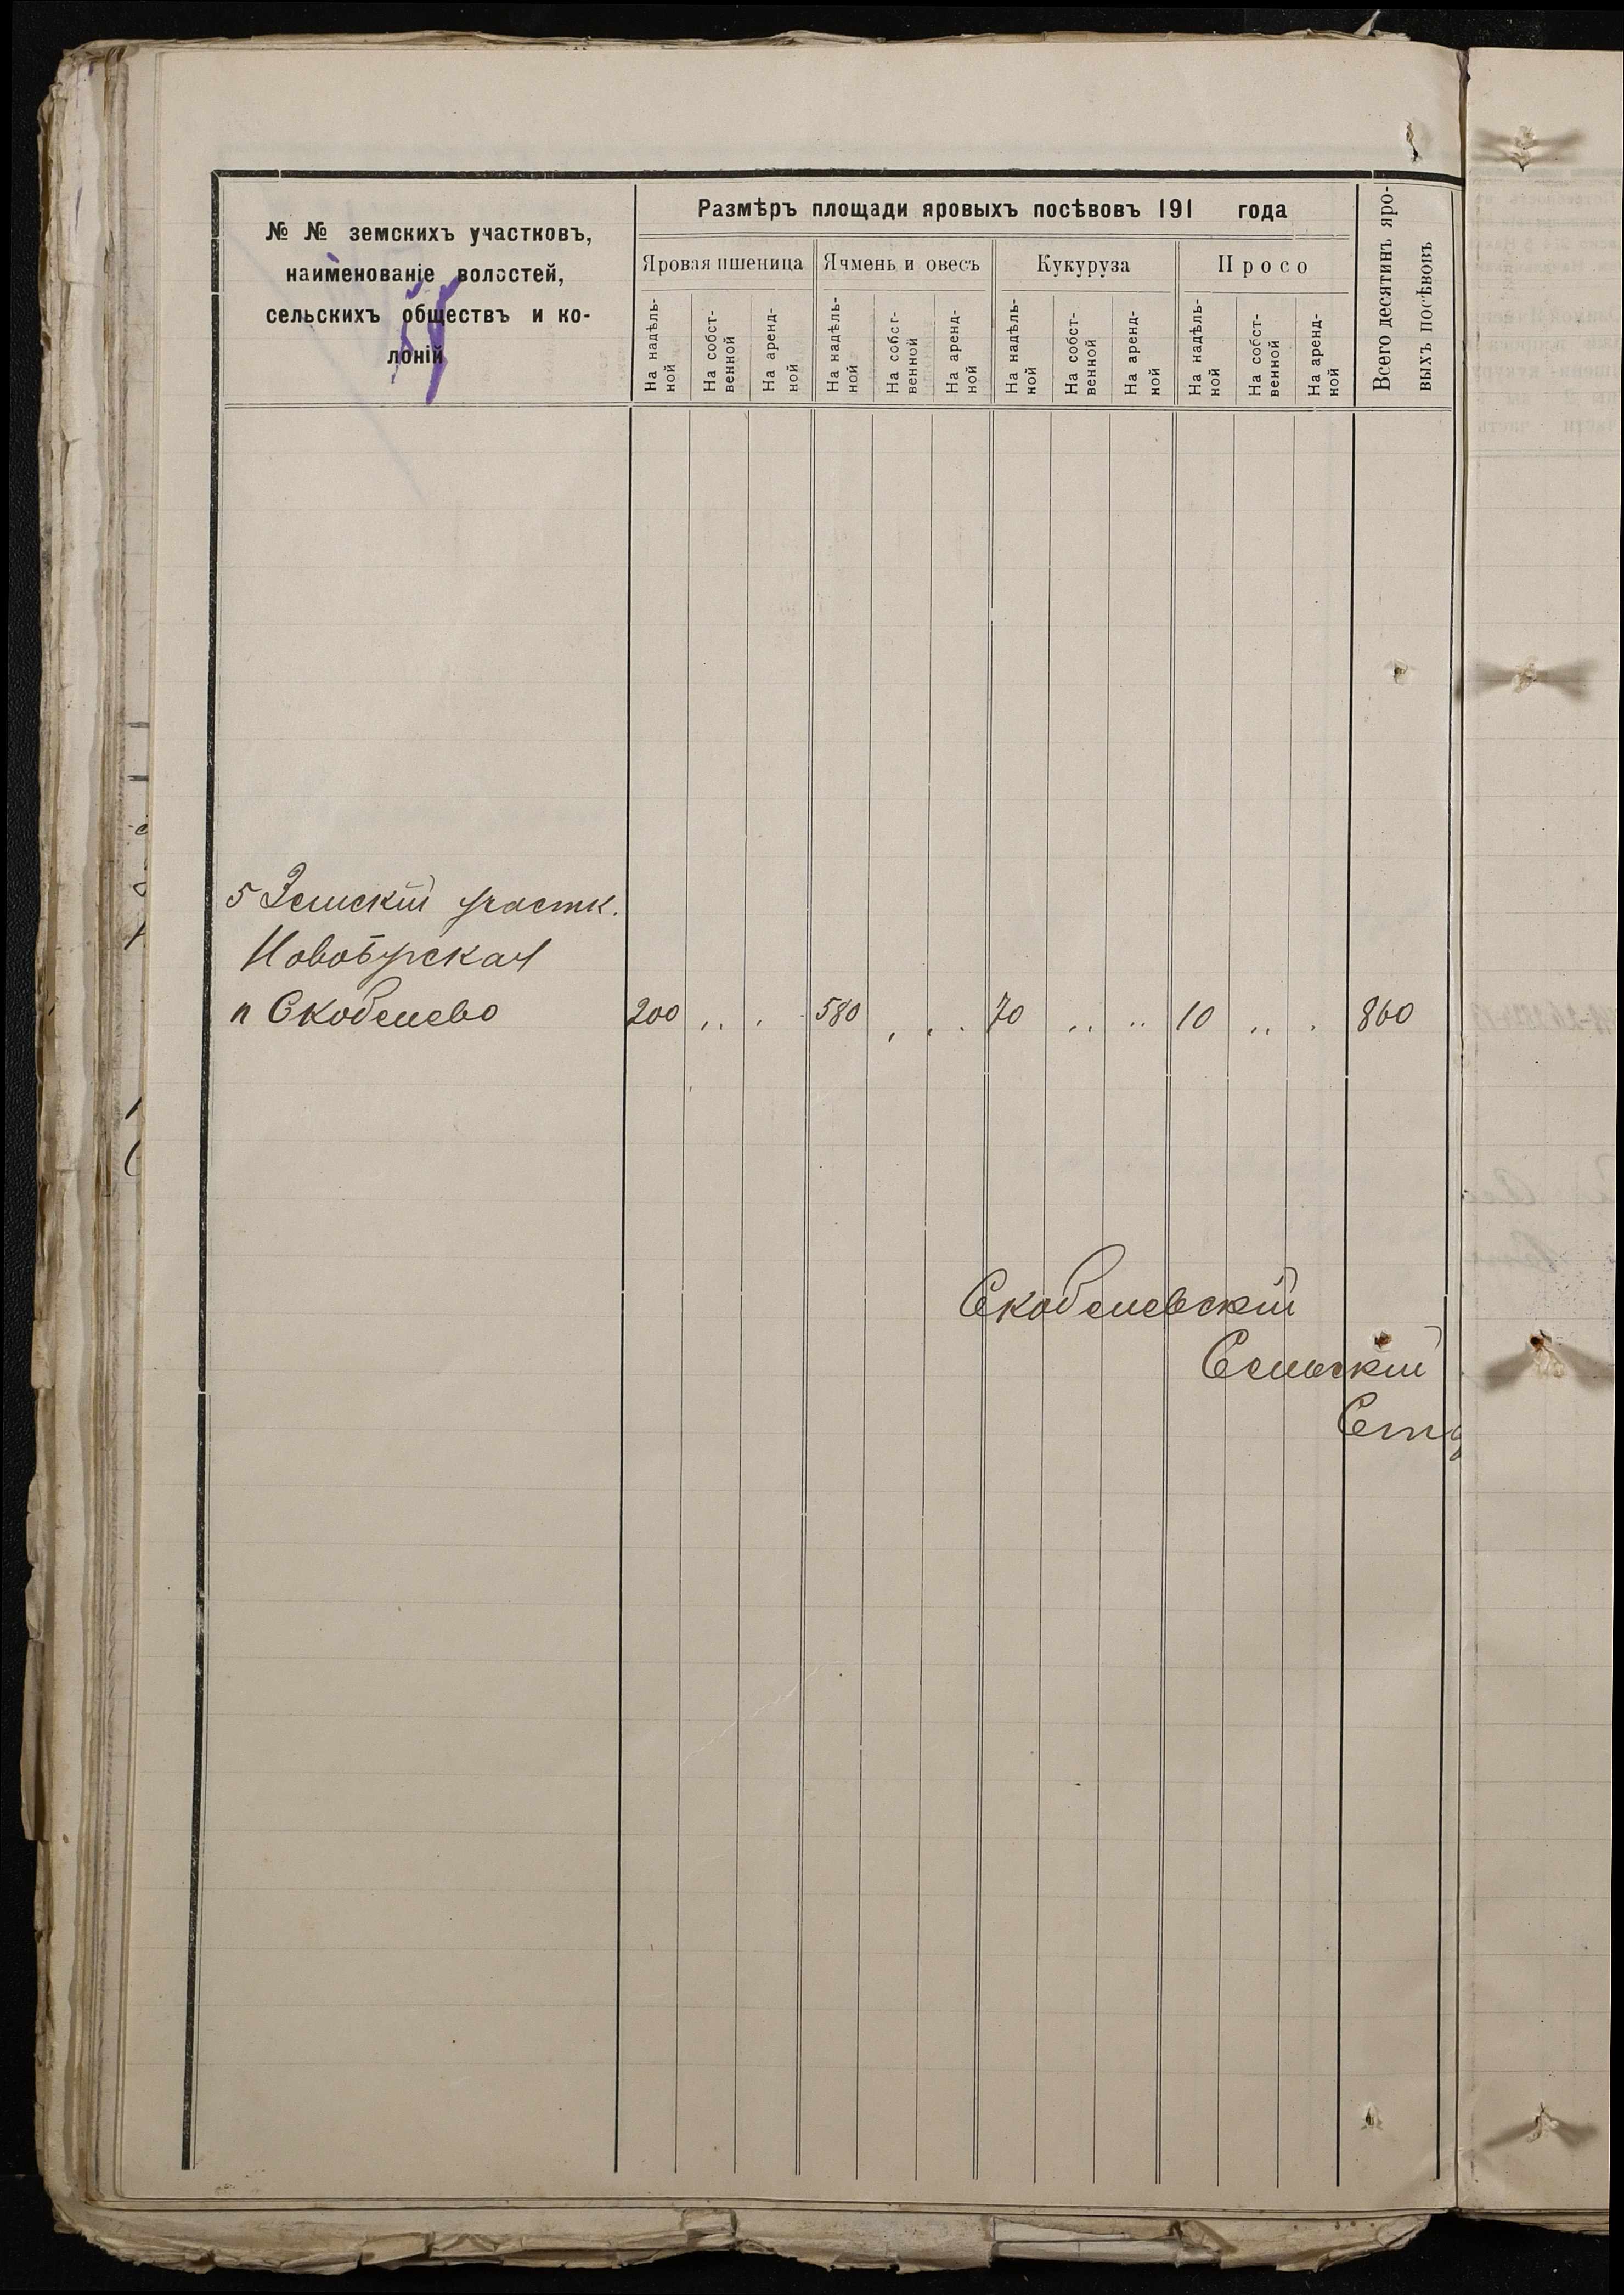 № № земскихъ участковъ,
наименованіе волостей,
сельскихъ обществъ и ко-
лоній
Размѣръ площади яровыхъ посѣвовъ 191 года
Яровая пшеница
Ячмень и овесъ
Кукуруза
Просо
На надѣль-
ной
На собст-
венной
На аренд-
ной
На надѣль-
ной
На собст-
венной
На аренд-
ной
На надѣль-
ной
На собст-
венной
На аренд-
ной
На надѣль-
ной
На собст-
венной
На аренд-
ной
Всего десятинъ яро-
выхъ посѣвовъ
5 Земскій участк.
Новобурская
п Скобелево 200 „ „ 580 „ „ 70 „ „ 10 „ „ 860
Скобелевскій
Сельскій